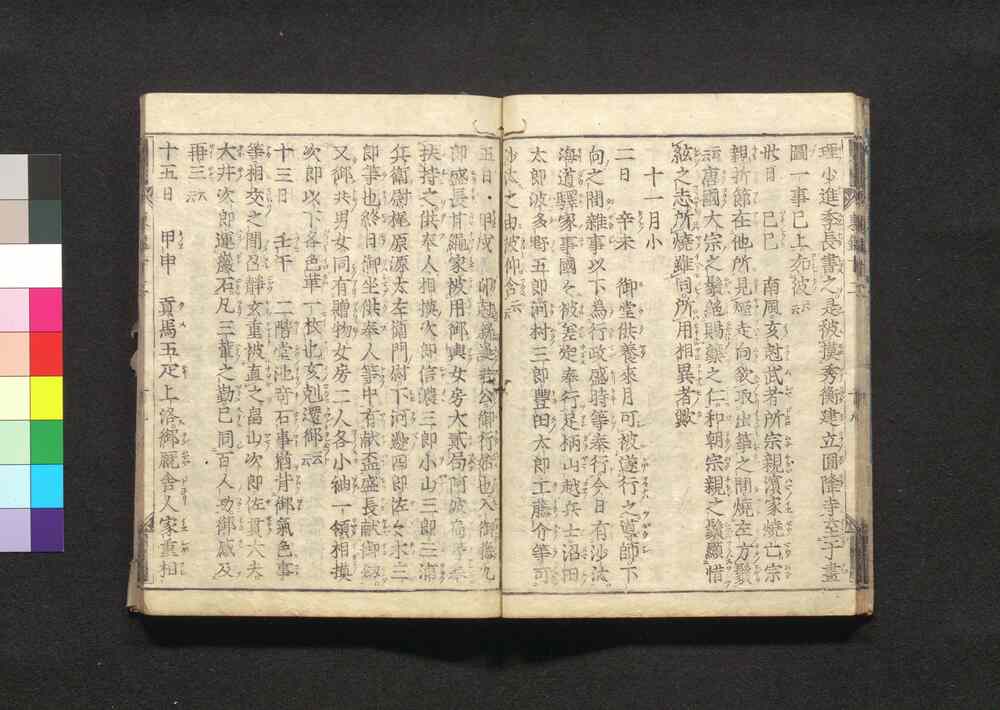 理少進季長書之是被摸秀衡建立圓隆寺至于畫
圖一事已上如彼云云
廿九日　己巳　南風亥尅武者所宗親濱家燒亡宗
親折節在他所見煙走向欲取出箏之間燒左方鬢
云云唐國大宗之鬢絶賜藥之仁和朝宗親之鬚顯惜
絃之志所燒雖同所用相異者歟
十一月小
二日　辛未　御堂供養來月可被遂行之導師下
向之間雜事以下為行政盛時等奉行今日有沙汰
海道驛家事國々被差定奉行足柄山越兵士沼田
太郎波多野五郎河村三郎豐田太郎工藤介等可
沙汰之由被仰含云云
五日　甲戌　卯尅新誕若公御行始也入御藤九
郎盛長甘繩家被用御輿女房大貳局阿波局等参
扶持之供奉人相摸次郎信濃三郎小山三郎三浦
兵衞尉梶原源太左衞門尉下河邊四郎佐々木三
郎等也終日御坐供奉人等中有献盃盛長献御劔
又御共男女同有贈物女房二人各小袖一領相摸
次郎以下各色革一枚也亥剋還御云云
十三日　壬午　二階堂池奇石事猶背御氣色事
等相交之間召靜玄重被直之畠山次郎佐貫大夫
大井次郎運巖石凡三輩之勤已同百人功御感及
再三云云
十五日　甲申　貢馬五疋上洛御厩舍人家重相